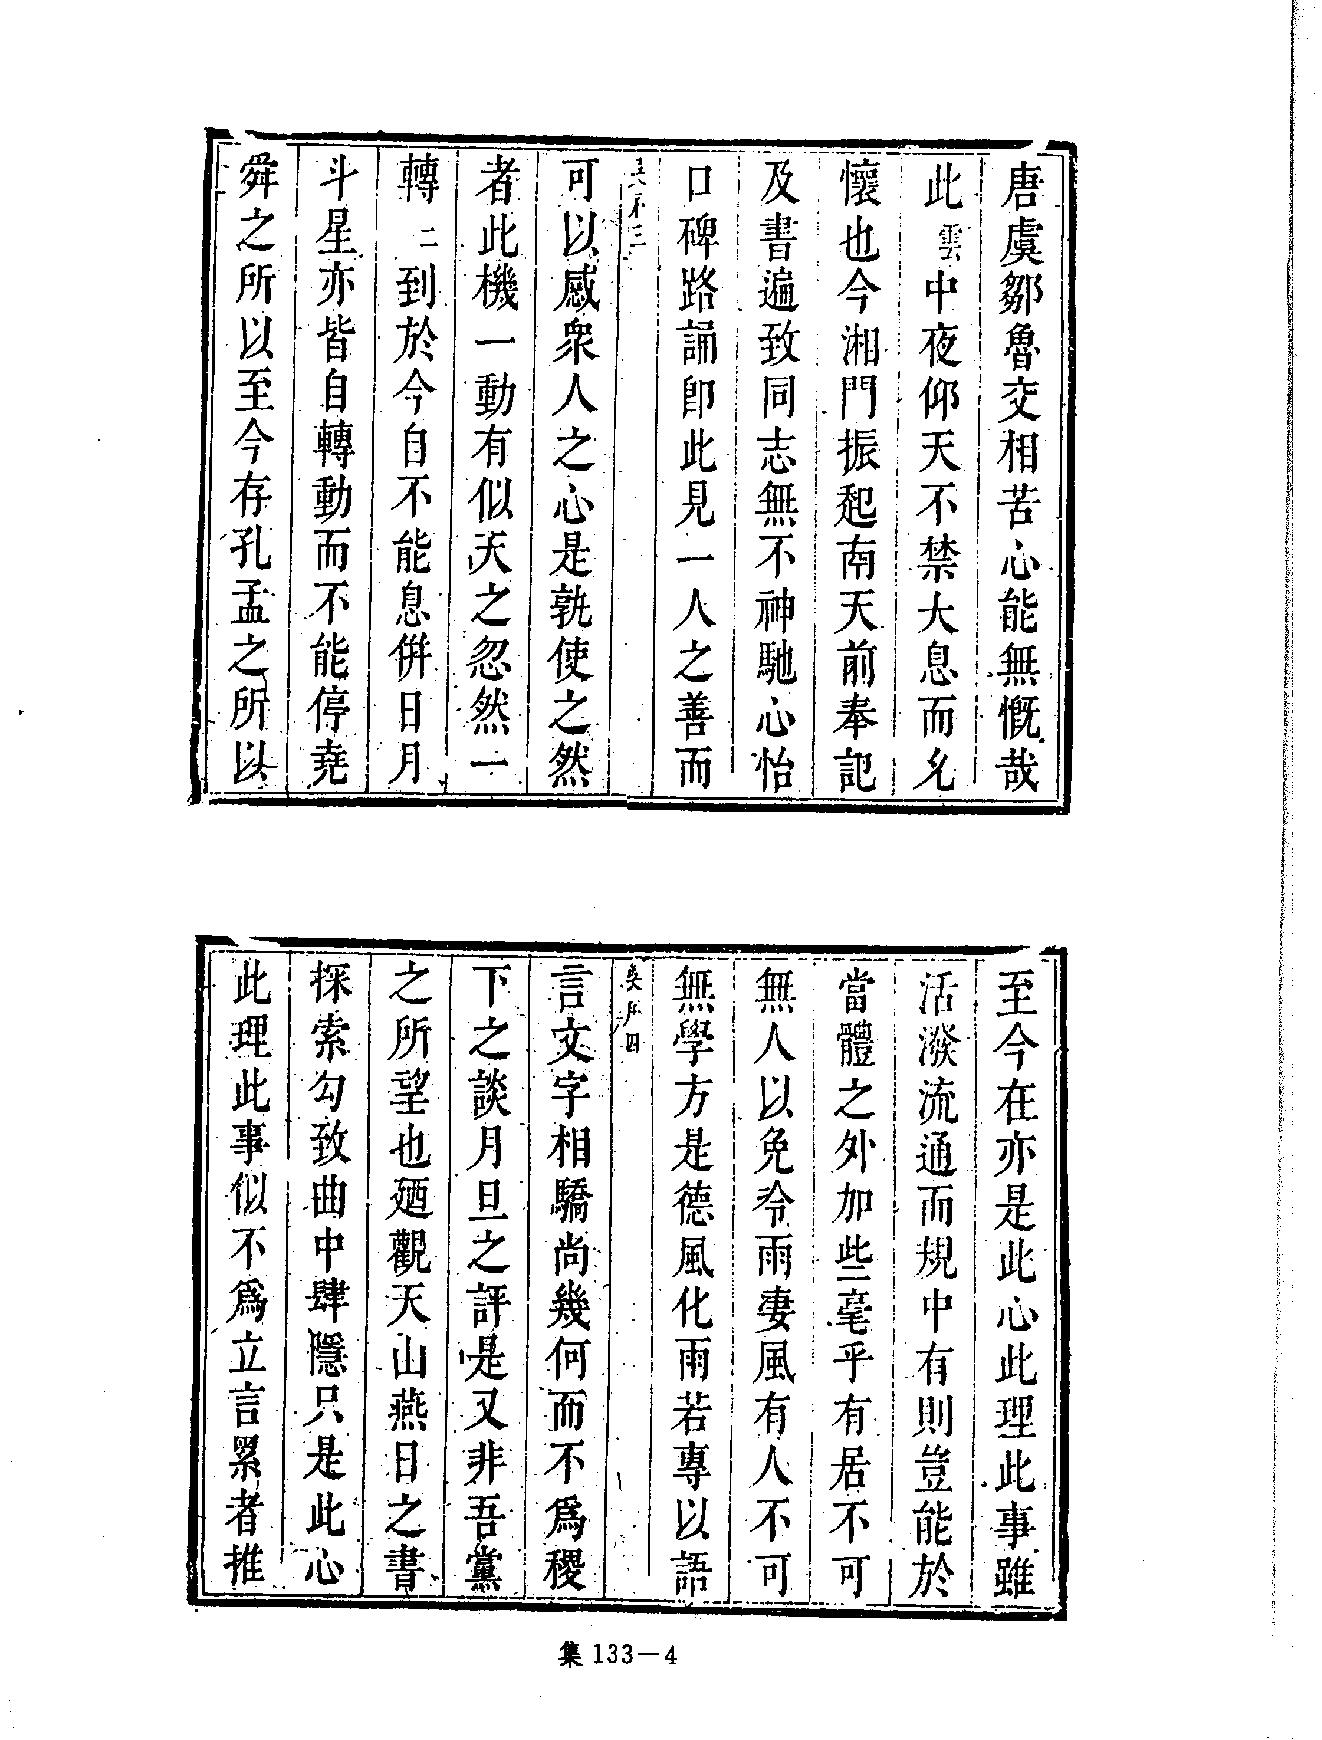 唐虞鄒魯交相苦心能無慨哉
此雲中夜仰天不禁大息而允
懷也今湘門振起南天前奉記
及書遍致同志無不神馳心怡
口碑路誦卽此見一人之善而
可以感衆人之心是孰使之然
者此機一動有似天之忽然一
轉二到於今自不能息併日月
斗星亦皆自轉動而不能停堯
舜之所以至今存孔孟之所以
至今在亦是此心此理此事雖
活潑流通而規中有則豈能於
當體之外加些毫乎有居不可
無人以免令雨凄風有人不可
無學方是德風化雨若專以語
吳序四
言文字相驕尚幾何而不爲稷
下之談月旦之評是又非吾黨
之所望也廼觀天山燕日之書
探索勾致曲中肆隱只是此心
此理此事似不爲立言累者推
集133－4